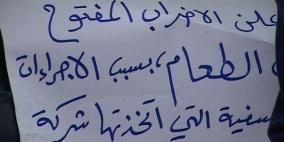 على الاضراب المفتوح
الطعام، بسبب الاجراءات
سفية التي اتخذتها شركة